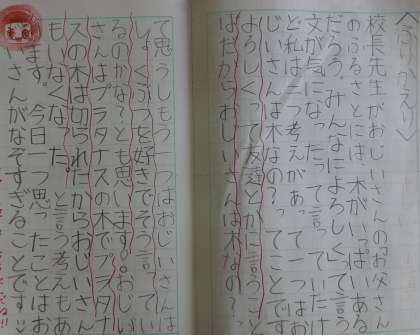 〈今日のふるさと〉
校長先生がおじいさんのお父さん
のふるさとには、木がいっぱいある
だろう。みんなによろしく」って言う
文が気になったって言っていたけ
ど私は一つ考えがあってことでお
じいさんは木なの？ってことです。
よろしくって友達とかに言うこと
ばだからおじいさんは木なの？っ
て思うしもう一つはおじいさんは
しょくぶつを好きでそう言ってい
るのかな？とも思います。おじい
さんはプラタナスの木でプラタナ
スの木は切られたからおじいさん
もいなくなった。と言う考えもあり
ます。今日一つ思ったことはお
いさんがなぞすぎることです。